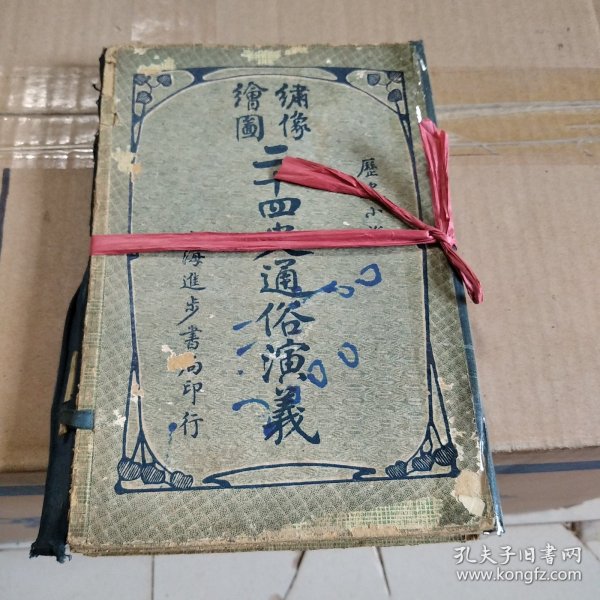 歷史小說
繡像
繪圖
二十四史通俗演義
海進步書局印行
孔夫子旧书网
www.kongfz.com